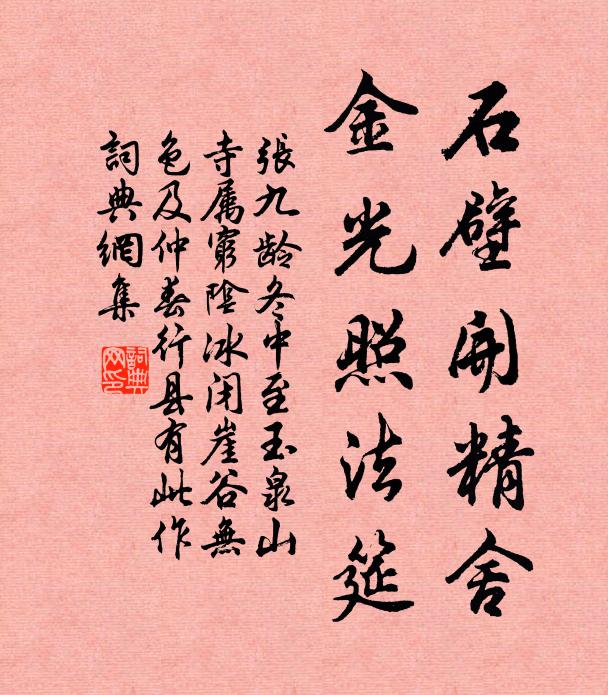 石壁開精舍
金光照法筵
張九龄冬中至玉泉山
寺属窮陰冰闭崖谷無
色及仲春行县有此作
詞典網集
詞典網印